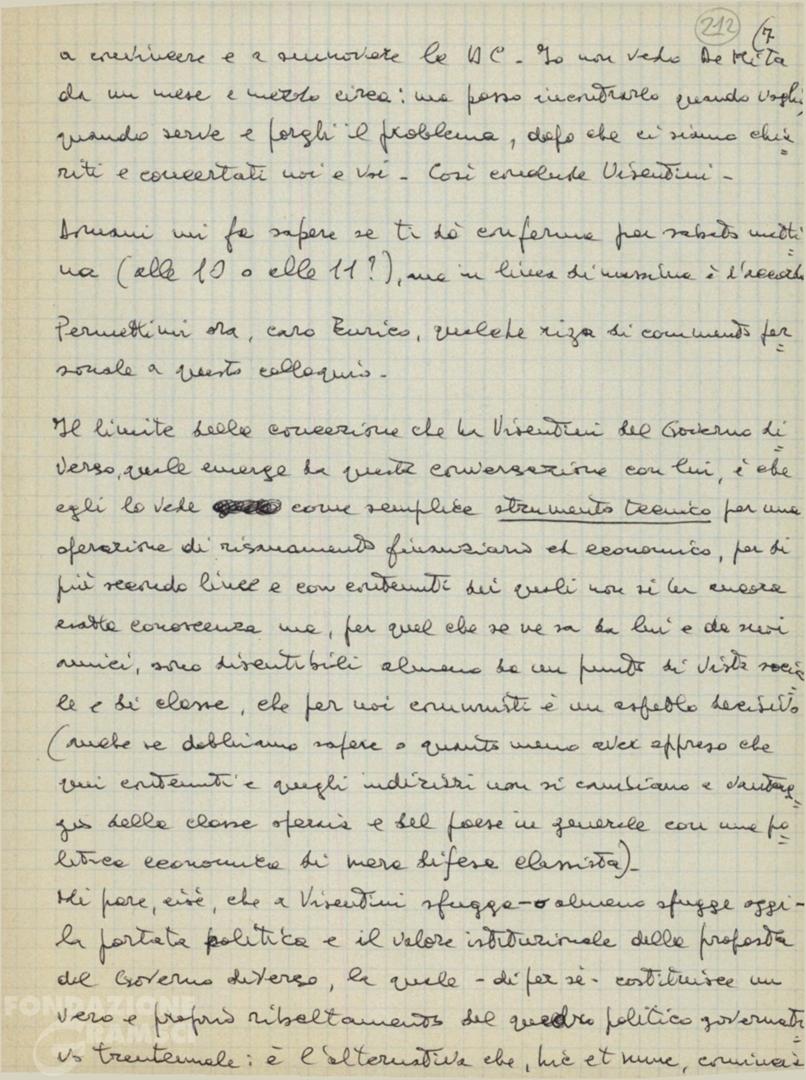 212 (7
a convincere e a smuovere la DC - Io non vedo De Mita
da un mese e mezzo circa: ma posso incontrarlo quando vogli,
quando serve e porgli il problema, dopo che ci siamo chia=
riti e concertati noi e voi - Così conclude Visentini -
Domani mi fa sapere se ti dà conferma per sabato matti=
na (alle 10 o alle 11?), ma in linea di massima è d'accordo
Permettimi ora, caro Enrico, qualche riga di commento per=
sonale a questo colloquio -
Il limite della concezione che ha Visentini del Governo di
verso, quale emerge da questa conversazione con lui, è che
egli lo vede come semplice strumento tecnico per una
operazione di risanamento finanziario ed economico, per di
più secondo linee e con contenuti dei quali non si ha ancora
esatta conoscenza ma, per quel che se ne sa da lui e da suoi
amici, sono discutibili almeno da un punto di vista socia=
le e di classe, che per noi comunisti è un aspetto decisivo
(anche se dobbiamo sapere o quanto meno aver appreso che
quei contenuti e quegli indirizzi non si cambiano a vantag=
gio della classe operaia e del paese in generale con una po=
litica economica di mera difesa classista) -
Mi pare, cioè, che a Visentini sfugga - o almeno sfugge oggi -
la portata politica e il valore istituzionale della proposta
del Governo diverso, la quale - di per sè - costituisce un
vero e proprio ribaltamento del quadro politico governati=
vo trentennale: è l'alternativa che, hic et nunc, comincia
FONDAZIONE
GRAMSCI